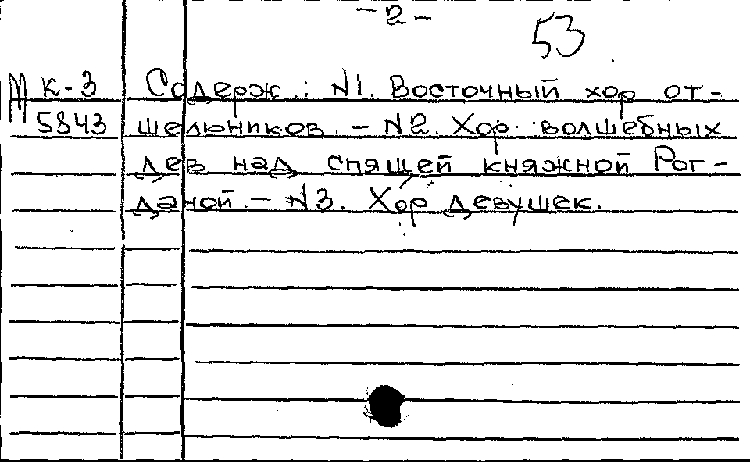 - 2 -
53
М К-3 Содерж.: N1. Восточный хор от-
5843 шельников. - N2. Хор волшебных
дев над спящей княжной Рог-
даной. - N3. Хор девушек.